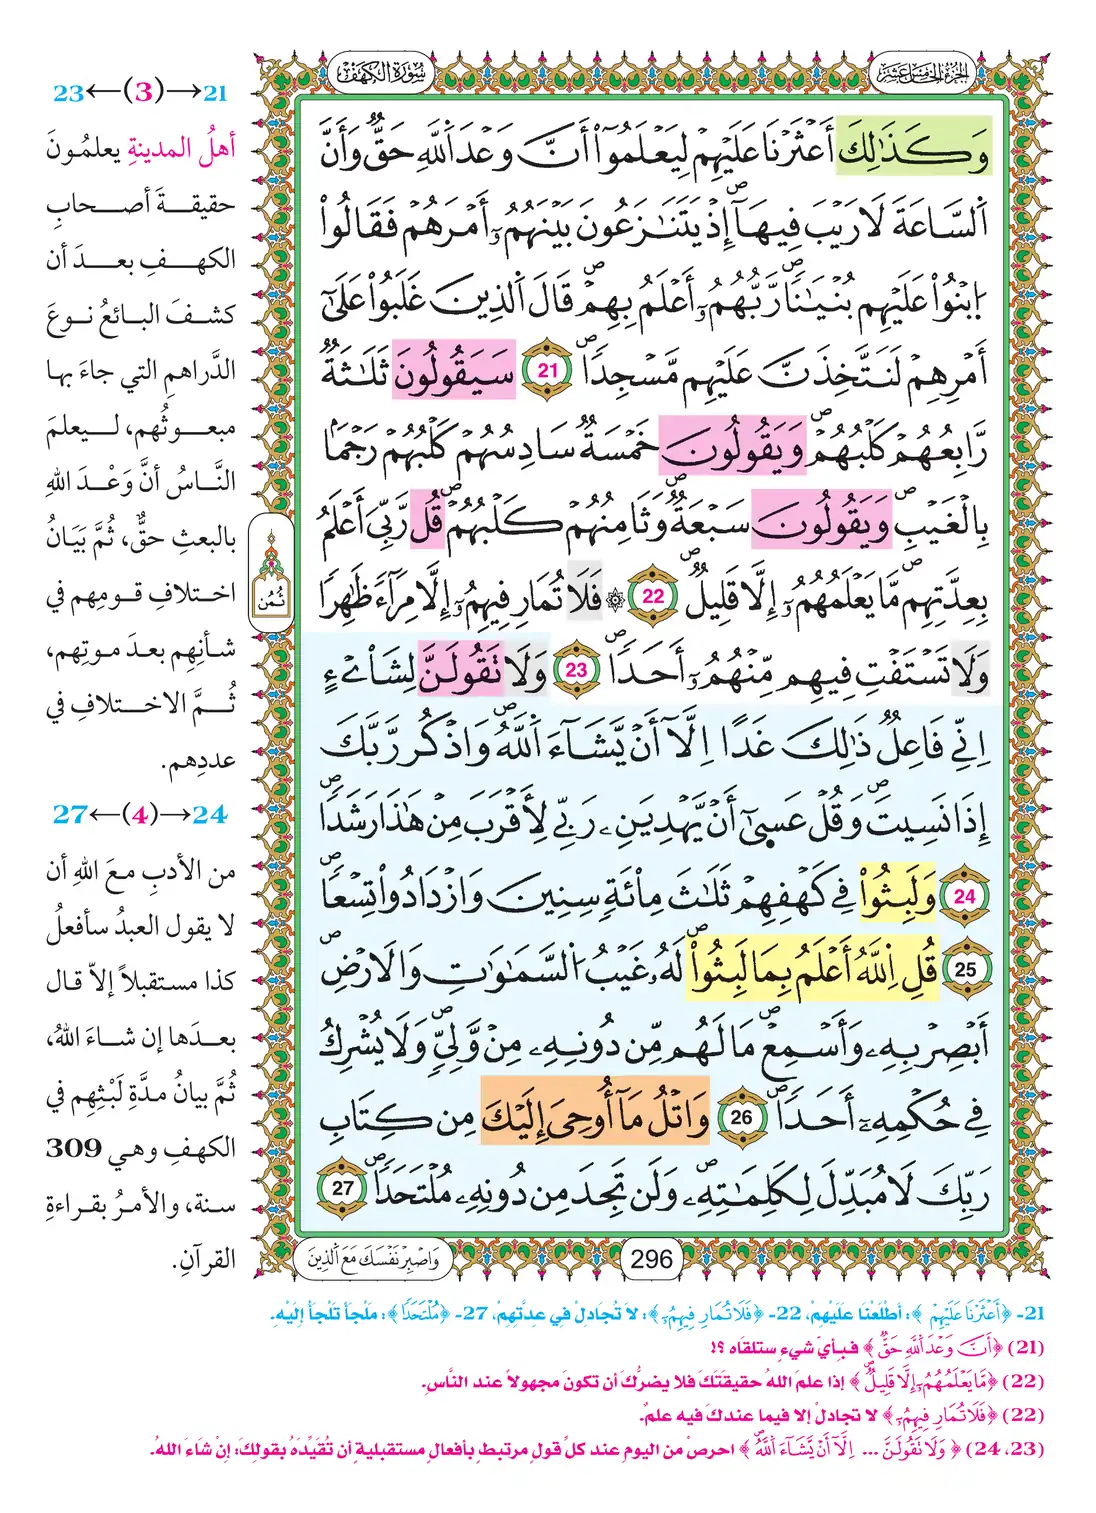 سُورَةُ الكَهْفِ
الجزء الخامس عشر
وَكَذَٰلِكَ أَعْثَرْنَا عَلَيْهِمْ لِيَعْلَمُوٓاْ أَنَّ وَعْدَ اَ۬للَّهِ حَقّٞ وَأَنَّ
اَ۬لسَّاعَةَ لَا رَيْبَ فِيهَآۖ إِذْ يَتَنَٰزَعُونَ بَيْنَهُمُۥٓ أَمْرَهُمْ فَقَالُواْ
اُ۪بْنُواْ عَلَيْهِم بُنْيَٰناٗۖ رَّبُّهُمُۥٓ أَعْلَمُ بِهِمْۖ قَالَ اَ۬لذِينَ غَلَبُواْ عَلَيٰٓ
أَمْرِهِمْ لَنَتَّخِذَنَّ عَلَيْهِم مَّسْجِداٗۖ 21 سَيَقُولُونَ ثَلَٰثَةٞ
رَّابِعُهُمْ كَلْبُهُمْۖ وَيَقُولُونَ خَمْسَةٞ سَادِسُهُمْ كَلْبُهُمْ رَجْماَۢ
بِالْغَيْبِۖ وَيَقُولُونَ سَبْعَةٞۖ وَثَامِنُهُمْ كَلْبُهُمْۖ قُل رَّبِّيَ أَعْلَمُ
بِعِدَّتِهِمۖ مَّا يَعْلَمُهُمُۥٓ إِلَّا قَلِيلٞۖ 22 ۞ فَلَا تُمَارِ فِيهِمُۥٓ إِلَّا مِرَآءٗ ظَٰهِراٗ
وَلَا تَسْتَفْتِ فِيهِم مِّنْهُمُۥٓ أَحَداٗۖ 23 وَلَا تَقُولَنَّ لِشَاْےْءٍ
اِنِّے فَاعِلٞ ذَٰلِكَ غَداً اِلَّآ أَنْ يَّشَآءَ اَ۬للَّهُۖ وَاذْكُر رَّبَّكَ
إِذَا نَسِيتَۖ وَقُلْ عَسَيٰٓ أَنْ يَّهْدِيَنِۦ رَبِّے لِأَقْرَبَ مِنْ هَٰذَا رَشَداٗۖ
24 وَلَبِثُواْ فِے كَهْفِهِمْ ثَلَٰثَ مِاْئَةٖ سِنِينَ وَازْدَادُواْ تِسْعاٗۖ
25 قُلِ اِ۬للَّهُ أَعْلَمُ بِمَا لَبِثُواْۖ لَهُۥ غَيْبُ اُ۬لسَّمَٰوَٰتِ وَالَارْضِۖ
أَبْصِرْ بِهِۦ وَأَسْمِعْۖ مَا لَهُم مِّن دُونِهِۦ مِنْ وَّلِيّٖۖ وَلَا يُشْرِكُ
فِے حُكْمِهِۦٓ أَحَداٗۖ 26 وَاتْلُ مَآ أُوحِيَ إِلَيْكَ مِن كِتَابِ
رَبِّكَ لَا مُبَدِّلَ لِكَلِمَٰتِهِۦۖ وَلَن تَجِدَ مِن دُونِهِۦ مُلْتَحَداٗۖ 27
ثُمُن
296
وَاصْبِرْ نَفْسَكَ مَعَ اَلذِينَ
21→(3)←23
أهلُ المدينةِ يعلمُونَ
حقيقةَ أصحابِ
الكهفِ بعدَ أن
كشفَ البائعُ نوعَ
الدَّراهمِ التي جاءَ بها
مبعوثُهم، ليعلمَ
النَّاسُ أنَّ وَعْدَ اللهِ
بالبعثِ حقٌّ، ثُمَّ بَيَانُ
اختلافِ قومِهم في
شأنِهِم بعدَ موتِهم،
ثُمَّ الاختلافِ في
عددِهم.
24→(4)←27
من الأدبِ معَ اللهِ أن
لا يقول العبدُ سأفعلُ
كذا مستقبلاً إلاّ قال
بعدَها إن شاءَ اللهُ،
ثُمَّ بيانُ مدَّةِ لَبْثِهِم في
الكهفِ وهي 309
سنة، والأمرُ بقراءةِ
القرآنِ.
21- ﴿أَعْثَرْنَا عَلَيْهِمْ﴾: أَطْلَعْنَا عَلَيْهِمْ، 22- ﴿فَلَا تُمَارِ فِيهِمُۥٓ﴾: لَا تُجَادِلْ فِي عِدَّتِهِمْ، 27- ﴿مُلْتَحَداٗ﴾: مَلْجَأً تَلْجَأُ إِلَيْهِ.
(21) ﴿أَنَّ وَعْدَ اَ۬للَّهِ حَقّٞ﴾ فبأيِّ شيءٍ ستلقَاه ؟!
(22) ﴿مَّا يَعْلَمُهُمُۥٓ إِلَّا قَلِيلٞۖ﴾ إذا علمَ اللهُ حقيقَتَكَ فلا يضرُّكَ أن تكونَ مجهولاً عند النَّاسِ.
(22) ﴿فَلَا تُمَارِ فِيهِمُۥٓ﴾ لا تجادلْ إلا فيما عندكَ فيه علمٌ.
(23، 24) ﴿وَلَا تَقُولَنَّ ... اِلَّآ أَنْ يَّشَآءَ اَ۬للَّهُۖ﴾ احرصْ من اليومِ عند كلِّ قولٍ مرتبطٍ بأفعالٍ مستقبليةٍ أن تُقَيِّدَهُ بقولِكَ: إنْ شَاءَ اللهُ.